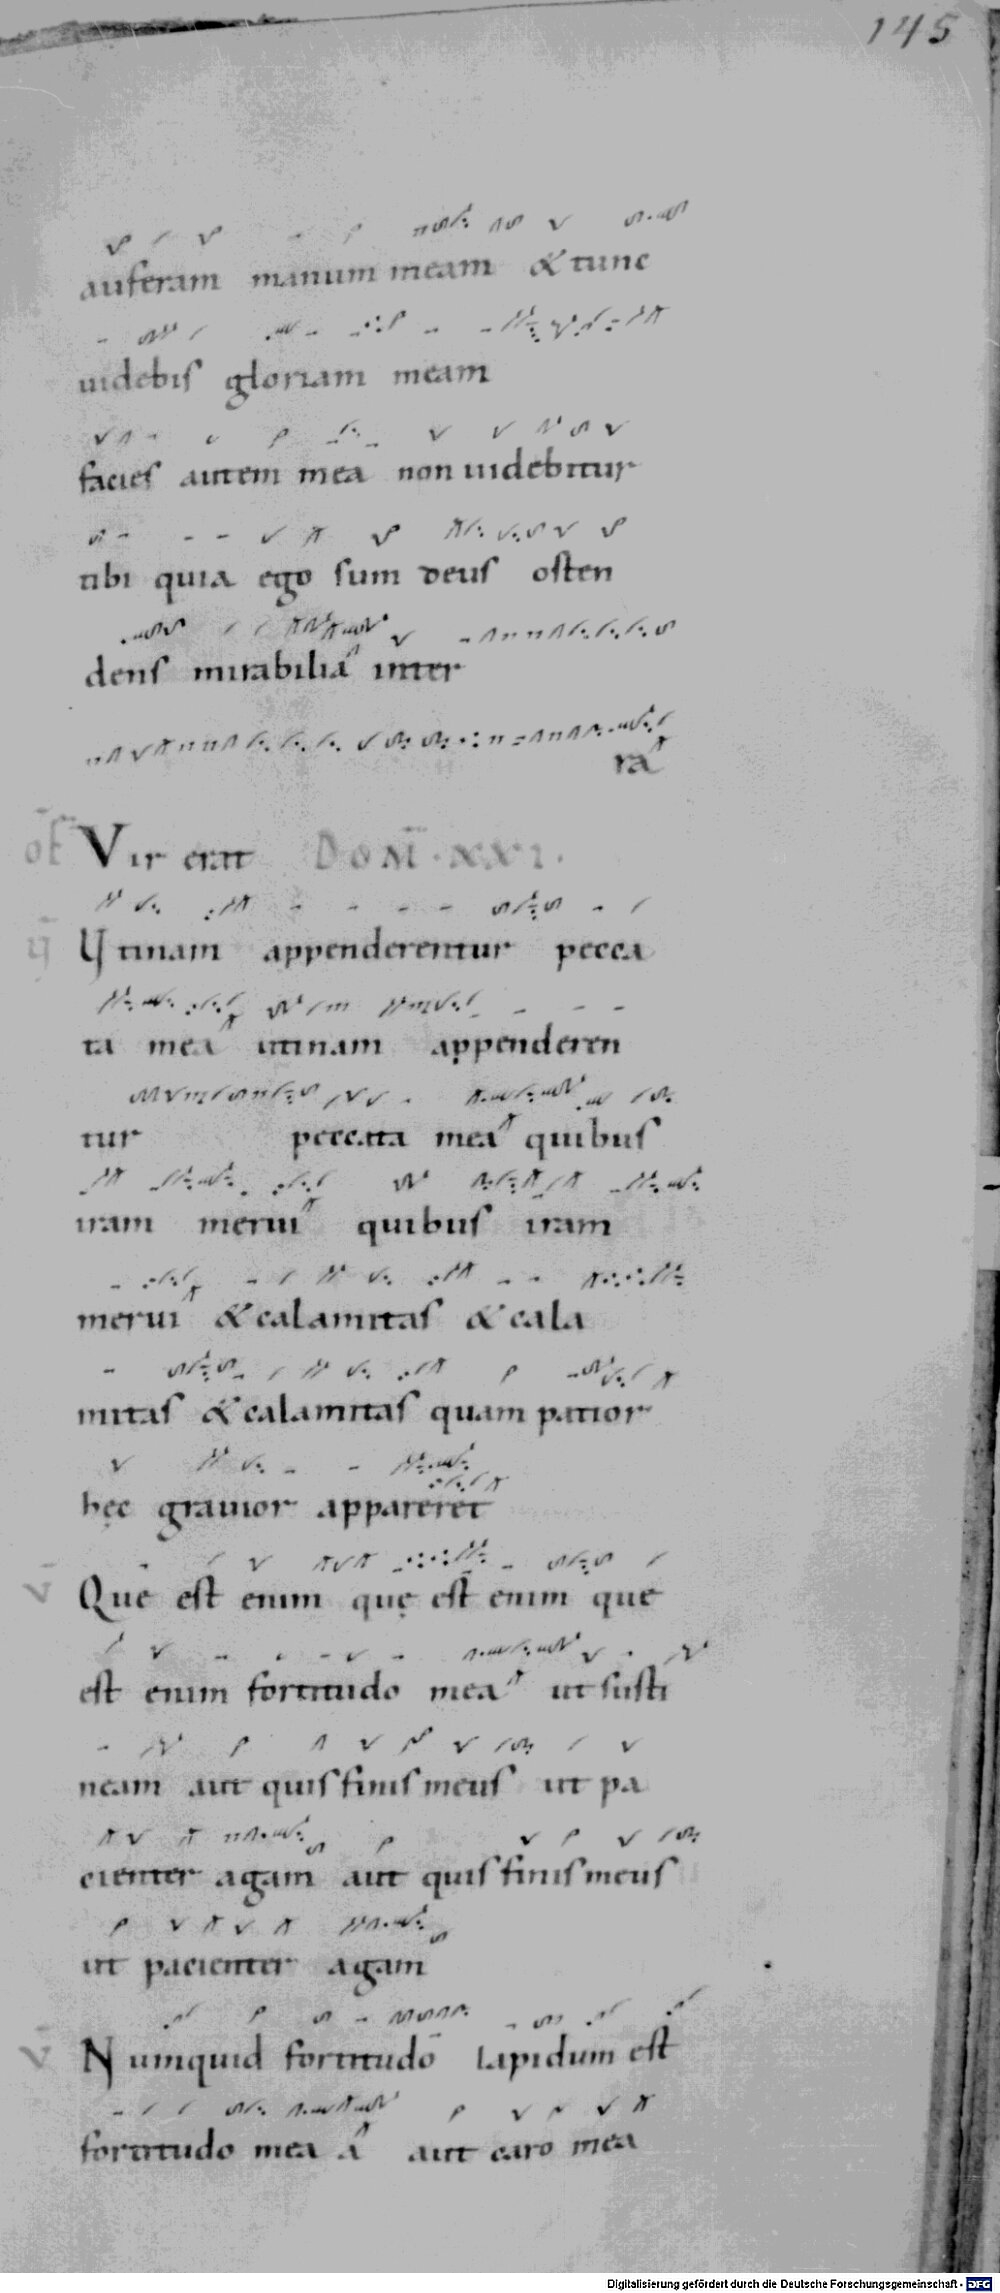 145
auferam manum meam & tunc
uidebis gloriam meam
facies autem mea non uidebitur
tibi quia ego sum deus osten
dens mirabilia inter
ra
Vir erat DOM̅·XXI·
Utinam appenderentur pecca
ta mea utinam appenderen
tur peccata mea quibus
iram merui quibus iram
merui & calamitas & cala
mitas & calamitas quam patior
hęc grauior appareret
v̅ Que est enim quę est enim que
est enim fortitudo mea ut susti
neam aut quis finis meus ut pa
cienter agam aut quis finis meus
ut pacienter agam
v̅ Numquid fortitudo lapidum est
fortitudo mea a aut caro mea
Digitalisierung gefördert durch die Deutsche Forschungsgemeinschaft - DFG